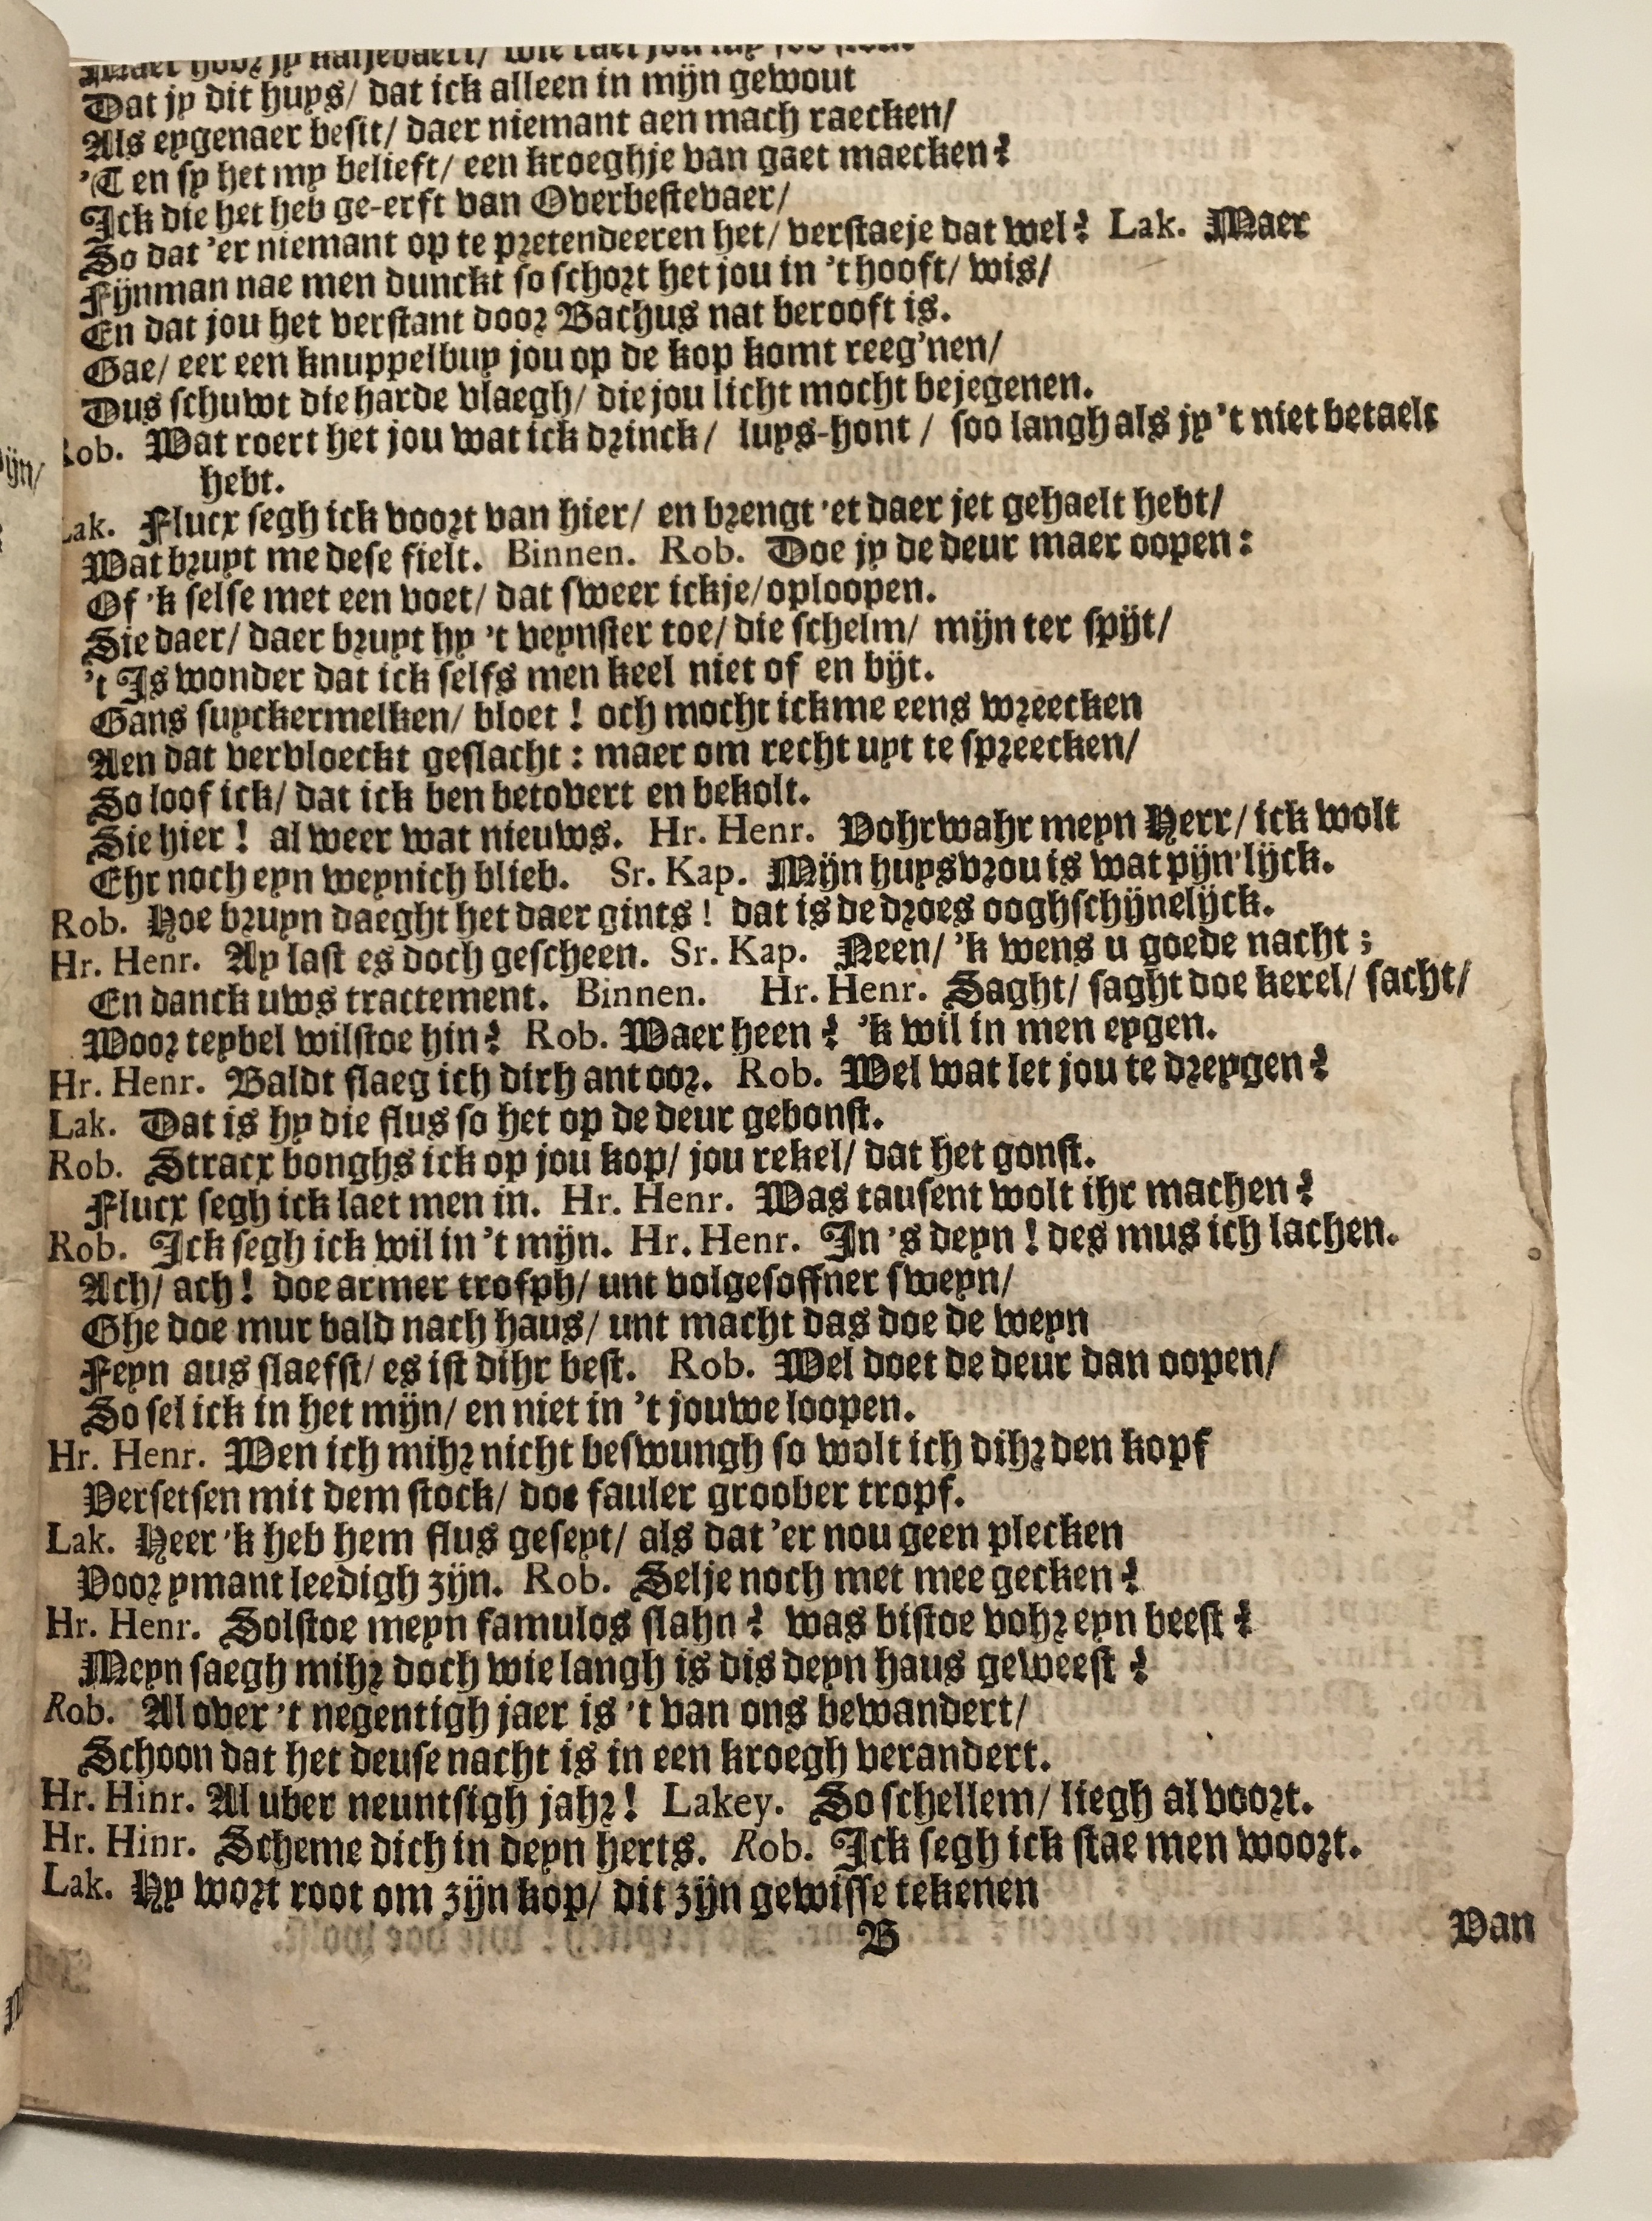 Maer hoor jy
Dat jy dit huys/ dat ick alleen in mijn gewout
Als eygenaer besit/ daer niemant aen mach raecken/
'T en sy het my belieft/ een kroeghje van gaet maecken?
Ick die het heb ge-erft van Overbestevaer/
So dat 'er niemant op te pretendeeren het/ verstaeje dat wel? Lak. Maer
Fijnman nae men dunckt so schort het jou in 't hooft/ wis/
En dat jou het verstant door Bachus nat berooft is.
Gae/ eer een knuppelbuy jou op de kop komt reeg'nen/
Dus schuwt die harde vlaegh/ die jou licht mocht bejegenen.
Rob. Wat roert het jou wat ick drinck/ luys-hont/ soo langh als jy 't niet betaelt
hebt.
Lak. Flucx segh ick voort van hier/ en brengt 'et daer jet gehaelt hebt/
Wat bruyt me dese fielt. Binnen. Rob. Doe jy de deur maer oopen:
Of 'k selse met een voet/ dat sweer ickje/ oploopen.
Sie daer/ daer bruyt hy 't veynster toe/ die schelm/ mijn ter spijt/
't Is wonder dat ick selfs men keel niet of en bijt.
Gans suyckermelken/ bloet! och mocht ick me eens wreecken
Aen dat vervloeckt geslacht: maer om recht uyt te spreecken/
So loof ick/ dat ick ben betovert en bekolt.
Sie hier! al weer wat nieuws. Hr. Henr. Vohrwahr meyn Herr/ ick wolt
Ehr noch eyn weynich blieb. Sr. Kap. Mijn huysvrou is wat pijn'lijck.
Rob. Hoe bruyn daeght het daer gints! dat is de droes ooghschijnelijck.
Hr. Henr. Ay last es doch gescheen. Sr. Kap. Neen/ 'k wens u goede nacht;
En danck uws tractement. Binnen. Hr. Henr. Saght/ saght doe kerel/ sacht/
Woor teybel wilstoe hin? Rob. Waer heen? 'k wil in men eygen.
Hr. Henr. Baldt slaeg ich dirh ant oor. Rob. Wel wat let jou te dreygen?
Lak. Dat is hy die flus so het op de deur gebonst.
Rob. Stracx bonghs ick op jou kop/ jou rekel/ dat het gonst.
Flucx segh ick laet men in. Hr. Henr. Was tausent wolt ihr machen?
Rob. Ick segh ick wil in 't mijn. Hr. Henr. In 's deyn! des mus ich lachen.
Ach/ ach! doe armer trofph/ unt volgesoffner sweyn/
Ghe doe mur bald nach haus/ unt macht das doe de weyn
Feyn aus slaefst/ es ist dihr best. Rob. Wel doet de deur dan oopen/
So sel ick in het mijn/ en niet in 't jouwe loopen.
Hr. Henr. Wen ich mihr nicht beswungh so wolt ich dihr den kopf
Versetsen mit dem stock/ doe fauler groober tropf.
Lak. Heer 'k heb hem flus geseyt/ als dat 'er nou geen plecken
Voor ymant leedigh zijn. Rob. Selje noch met mee gecken?
Hr. Henr. Solstoe meyn famulos slahn? was bistoe vohr eyn beest?
Meyn saegh mihr doch wie langh is dis deyn haus geweest?
Rob. Al over 't negentigh jaer is 't van ons bewandert/
Schoon dat het deuse nacht is in een kroegh verandert.
Hr. Hinr. Al uber neuntsigh jahr! Lakey. So schellem/ liegh al voort.
Hr. Hinr. Scheme dich in deyn herts. Rob. Ick segh ick stae men woort.
Lak. Hy wort root om zijn kop/ dit zijn gewisse tekenen
B Van